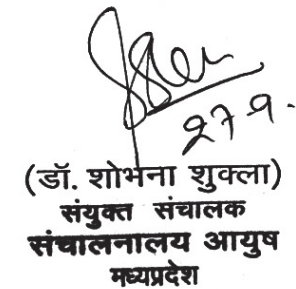 27-9-
(डॉ. शोभना शुक्ला)
संयुक्त संचालक
संचालनालय आयुष
मध्यप्रदेश